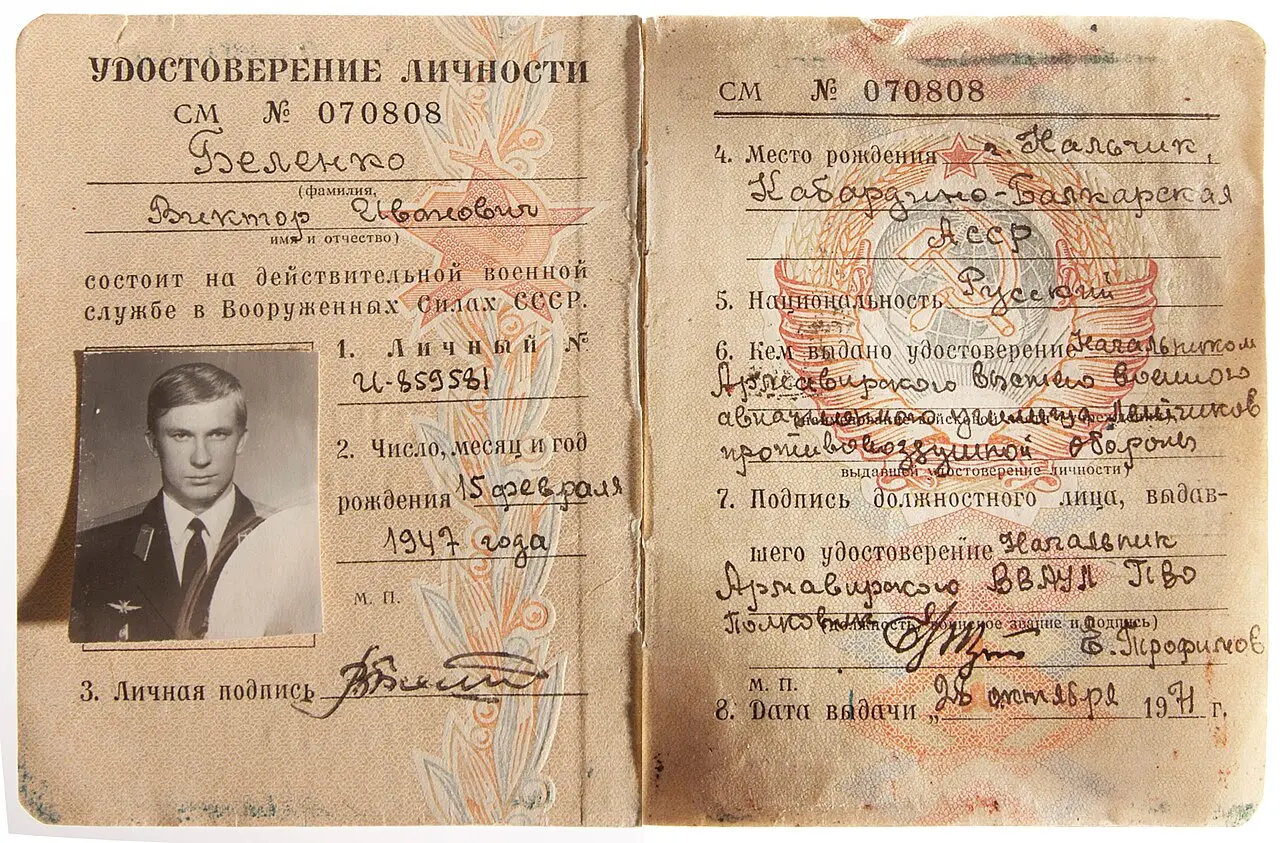 УДОСТОВЕРЕНИЕ ЛИЧНОСТИ
СМ № 070808
Беленко
(фамилия,
Виктор Иванович
имя и отчество)
состоит на действительной военной
службе в Вооруженных Силах СССР.
1. Личный №
И-859581
2. Число, месяц и год
рождения 15 февраля
1947 года
М. П.
3. Личная подпись
СМ № 070808
4. Место рождения г. Нальчик,
Кабардино-Балкарская
АССР
5. Национальность Русский
6. Кем выдано удостоверение Начальником
Армавирского высшего военного
авиационного училища летчиков
противовоздушной обороны
выдавшей удостоверение личности)
7. Подпись должностного лица, выдав-
шего удостоверение Начальник
Армавирского ВВАУЛ ПВО
Полковник Е. Трофимов
(должность, воинское звание и подпись)
М. П.
8. Дата выдачи „ 26 октября 1971 г.